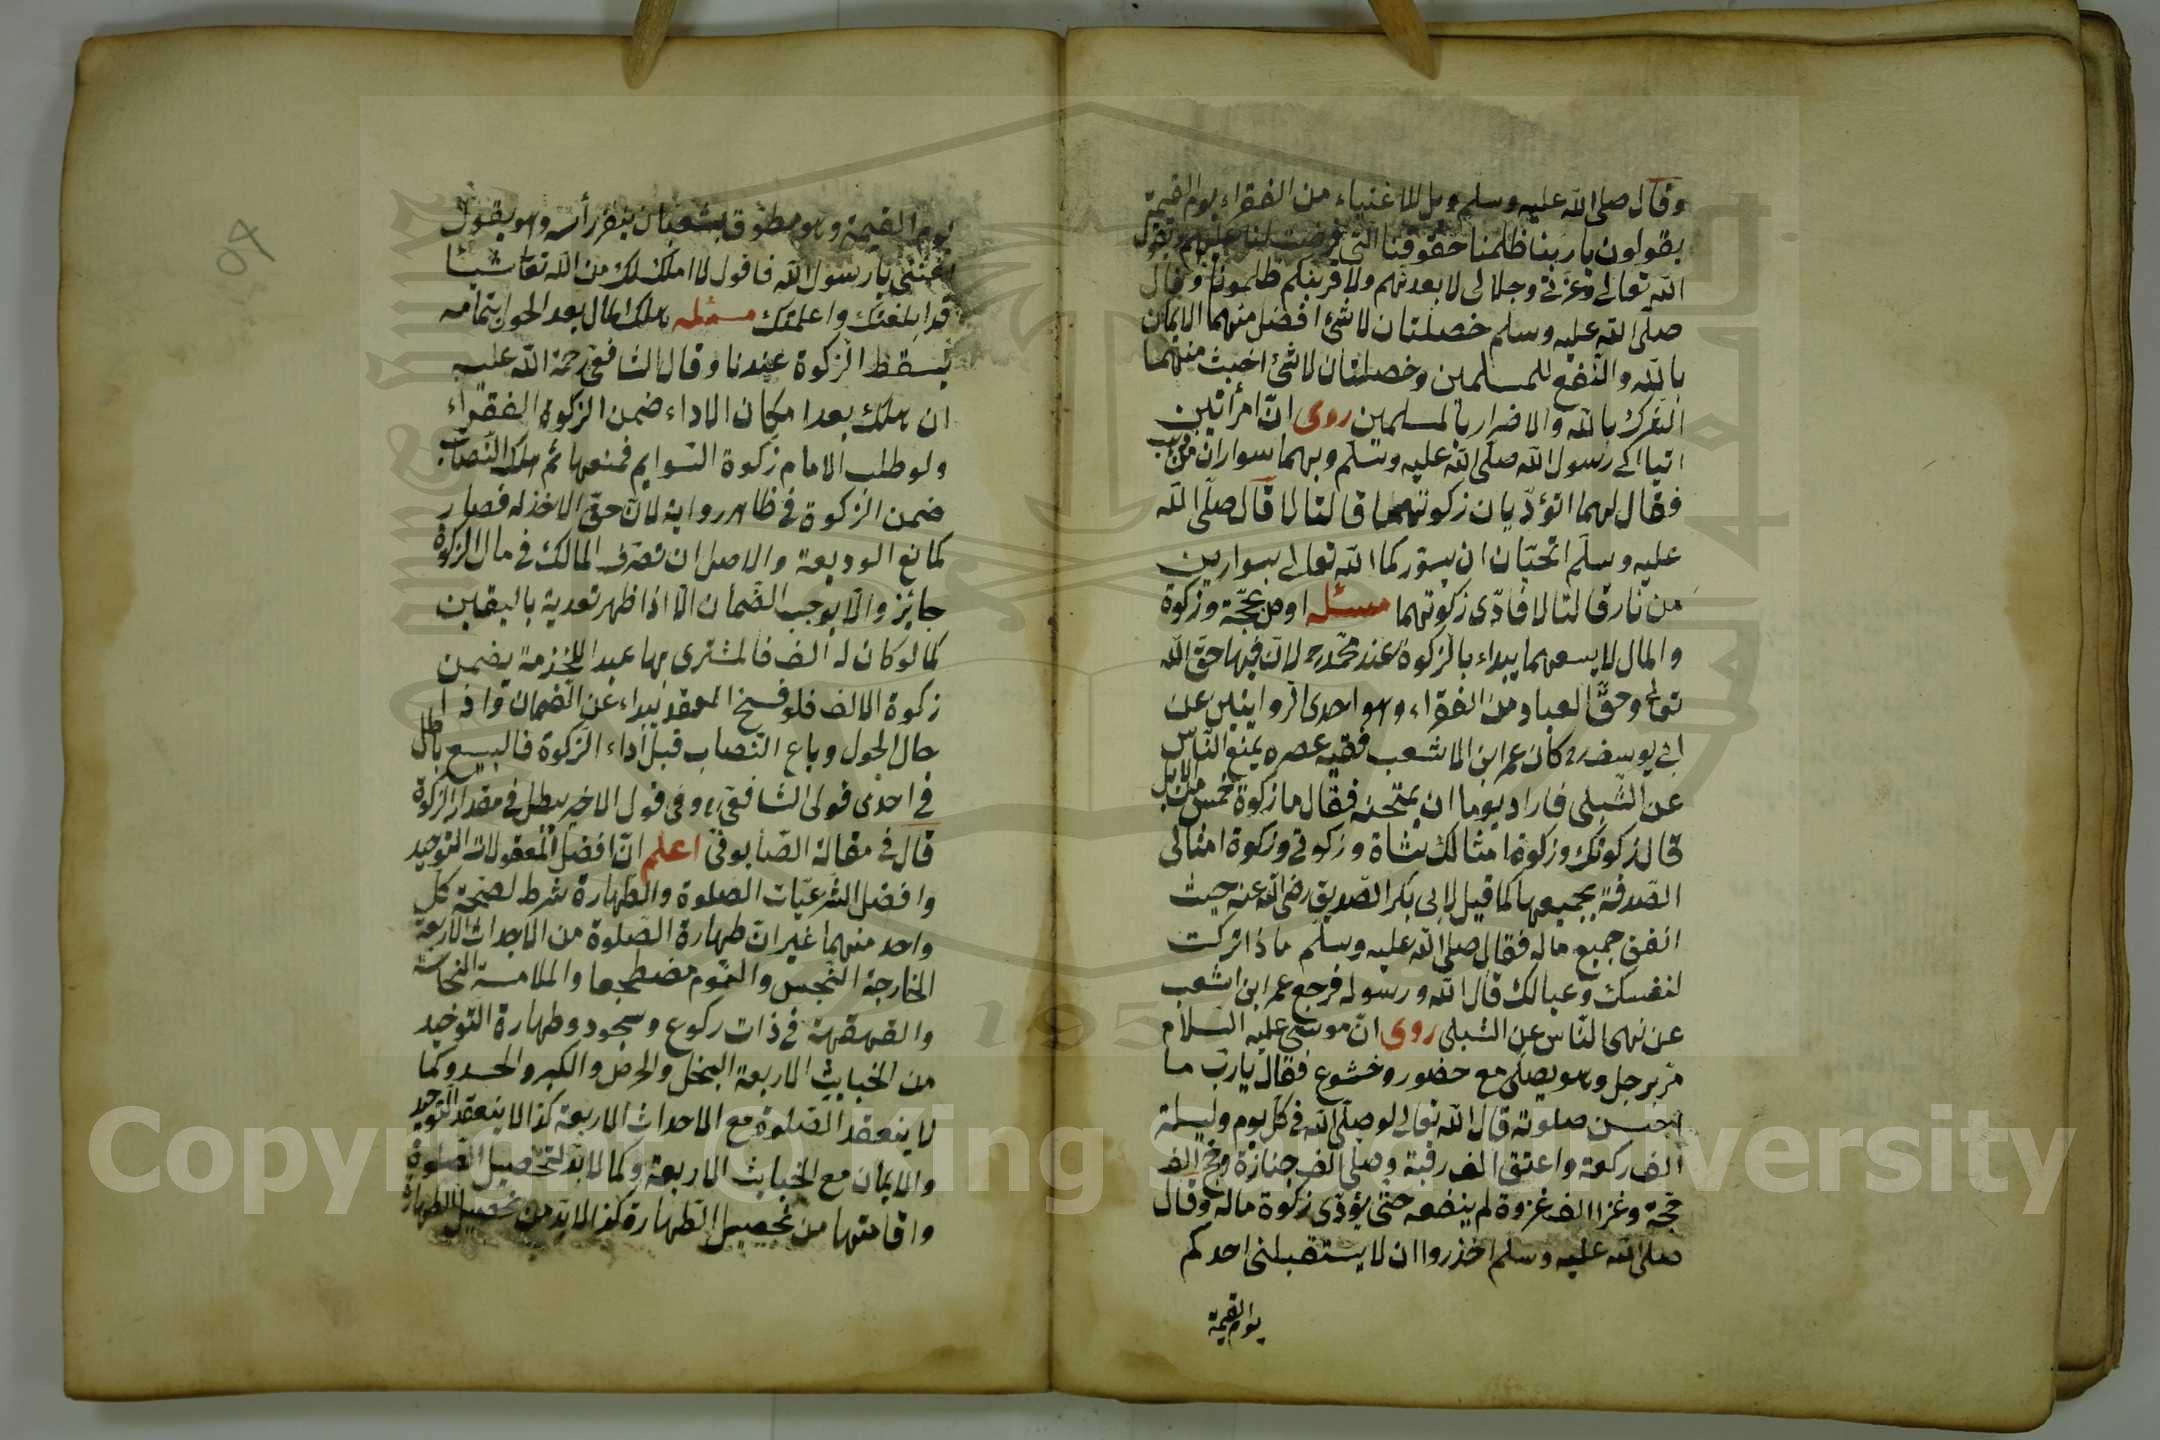 وقال صلى الله عليه وسلم ويل للاغنياء من الفقراء يوم القيمة
يقولون يا ربنا ظلمنا حقوقنا التى فرضت لنا عليهم ويقول
الله تعالى وعزتى وجلالى لابعدنهم ولاقربنكم ظلمونا وقال
صلى الله عليه وسلم خصلتان لا شئ افضل منهما الايمان
بالله والنفع للمسلمين وخصلتان لا شئ اخبث منهما
الشرك بالله والاضرار بالمسلمين روى ان امرأتين
اتيا الى رسول الله صلى الله عليه وسلم وبهما سواران من ذهب
فقال لهما اتؤديان زكوتهما قالتا لا قال صلى الله
عليه وسلم اتحبان ان يسوركما الله تعالى بسوارين
من نار قالتا لا فادى زكوتهما مسئله اوصى بحجة وزكوة
والمال لا يسعهما يبداء بالزكوة عند محمد رح لان فيها حق الله
تعالى وحق العباد من الفقراء وهو احدى الروايتين عن
ابى يوسف رح كان عمر ابن الاشعب فقيه عصره يمنع الناس
عن الشبلى فاراد يوما ان يمتحنه فقال ما زكوة خمس من الابل
قال زكوتك وزكوة امثالك شاة وزكوتى وزكوة امثالى
الصدقة بجميعها كما قيل لابى بكر الصديق رضى الله عنه حيث
انفق جميع ماله فقال صلى الله عليه وسلم ماذا تركت
لنفسك وعيالك قال الله ورسوله فرجع عمر ابن اشعب
عن نهى الناس عن الشبلى روى ان موسى عليه السلام
مر برجل وهو يصلى مع حضور وخشوع فقال يا رب ما
احسن صلوته قال الله تعالى لو صلى لله فى كل يوم وليلة
الف ركعة واعتق الف رقبة وصلى الف جنازة وحج الف
حجة وغزا الف غزوة لم ينفعه حتى يؤدى زكوة ماله وقال
صلى الله عليه وسلم احذروا ان لا يستقبلنى احدكم
يوم القيمة
يوم القيمة وهو مطوق بثعبان ينقر رأسه وهو يقول
اغثنى يا رسول الله فاقول لا املك لك من الله تعالى شيئا
قد ابلغتك واعلمتك مسئله هلك المال بعد الحول بتمامه
يسقط الزكوة عندنا وقال الشافعى رحمة الله عليه
ان هلك بعد امكان الاداء ضمن الزكوة الفقراء
ولو طلب الامام زكوة السوايم فمنعها ثم هلك النصاب
ضمن الزكوة فى ظاهر رواية لان حق الاخذ له فصار
كمانع الوديعة والاصل ان تصرف المالك فى مال الزكوة
جائز والا يوجب الضمان الا اذا ظهر تعديه باليقين
كما لو كان له الف فالمشترى بها عبدا للخدمة يضمن
زكوة الالف فلو فسخ العقد يبداء عن الضمان واذا
حال الحول وباع النصاب قبل أداء الزكوة فالبيع باطل
فى احدى قولى الشافعى وفى قول الاخير يبطل فى مقدار الزكوة
قال فى مقالة الصابونى اعلم ان افضل المعقولات التوحيد
وافضل الشرعيات الصلوة والطهارة شرط لصحة كل
واحد منهما غير ان طهارة الصلوة من الاحداث الاربعة
الخارجة النجس والنوم مضطجعا والملامسة الفاحشة
والقهقهة فى ذات ركوع وسجود وطهارة التوحيد
من الخبايث الاربعة البخل والحرص والكبر والحسد وكما
لا ينعقد الصلوة مع الاحداث الاربعة كذا لا ينعقد التوحيد
والايمان مع الخبايث الاربعة وكما لا بد لتحصيل الصلوة
واقامتها من تحصيل الطهارة كذا لا بد من تحصيل الطهارة
Copyright © King Saud University